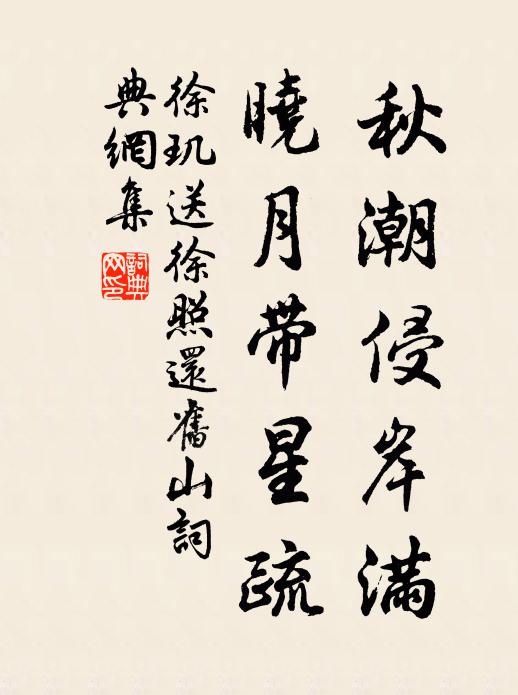 秋潮侵岸滿
曉月帶星疏
徐玑送徐照還舊山詞
典網集
詞典網印